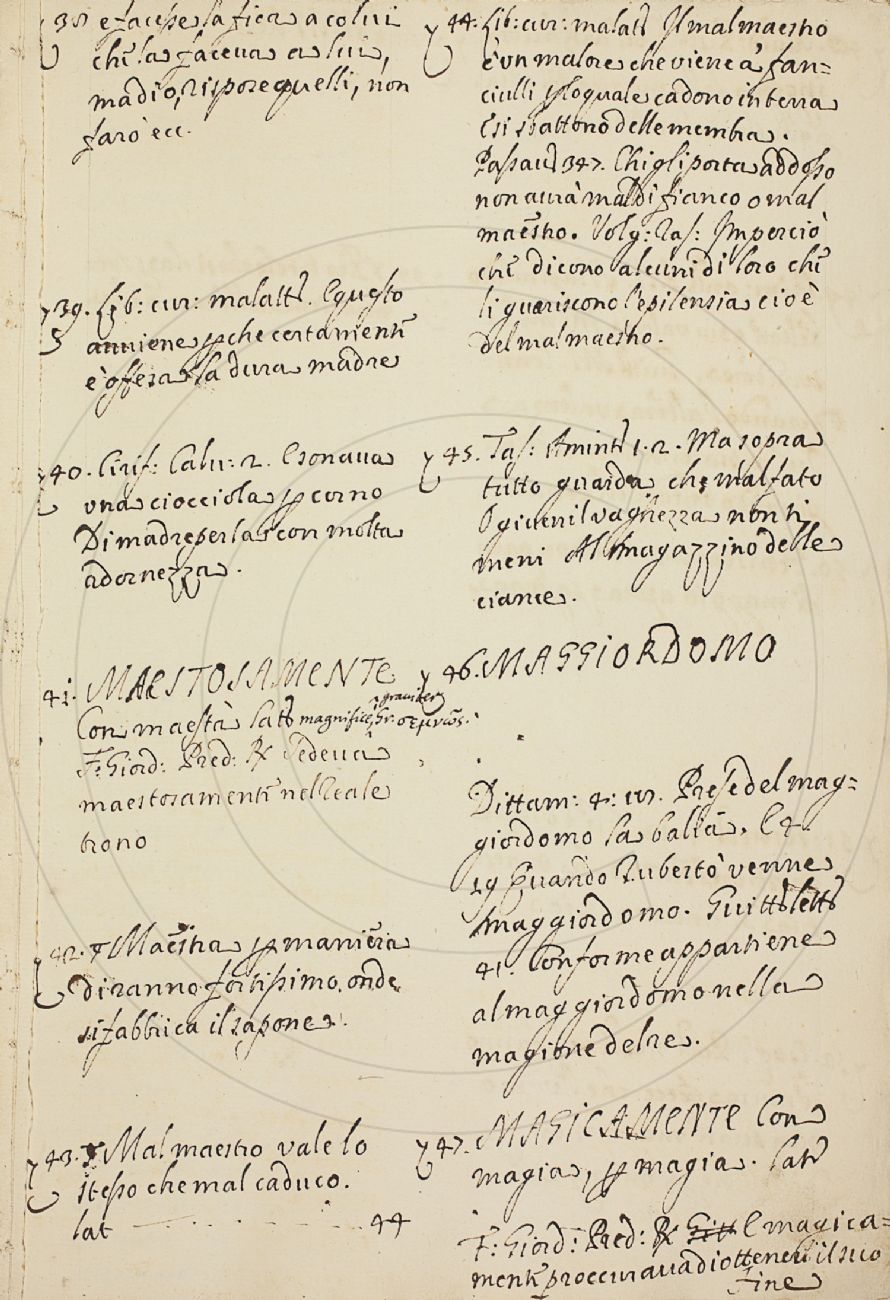 38 e facesse la fiera a colui
che la faceva a lui,
madiò, rispose quelli, non
farò ec.
39. Lib: cur: malatt. E questo
avviene perche certamente
è offesa la dura madre
40. Cirif: Calv: 2. E sonava
una ciocciola per corno
Di madreperla con molta
adornezza.
41. MAESTOSAMENTE
Con maestà Lat magnificè, graviter Gr. σεμνῶς.
F: Giord: Pred: R Sedeva
maestosamente nel Reale
trono
42. Maestra per maniera
di ranno fortissimo, onde
si fabbrica il sapone.
43. Mal maestro vale lo
stesso che mal caduco.
lat . . . . . . . . 44
44. Lib: cur: malatt Il mal maestro
è un malore che viene a' fan=
ciulli per lo quale cadono in terra
E si sbattono delle membra.
Passav 347. Chi gli porta addosso
non avrà mal di fianco o mal
maestro. Volg: Ras: Imperciò
che dicono alcuni di loro che
li guariscono l'epilensia cioè
del mal maestro.
45. Tass: Amint 1. 2. Ma sopra
tutto guarda che mal fato
O giovenil vaghezza non ti
meni Al magazzino delle
ciance.
46. MAGGIORDOMO
Dittam: 4: Prese del mag=
giordomo la balìa. E 4.
19 Quando Ruberto venne
maggiordomo. Guitt lett
41. Conforme appartiene
al maggiordomo nella
magione del re.
47. MAGICAMENTE Con
magia, per magia. Lat
F: Giord: Pred: R E magica=
mente proccurava di ottenere il suo
fine